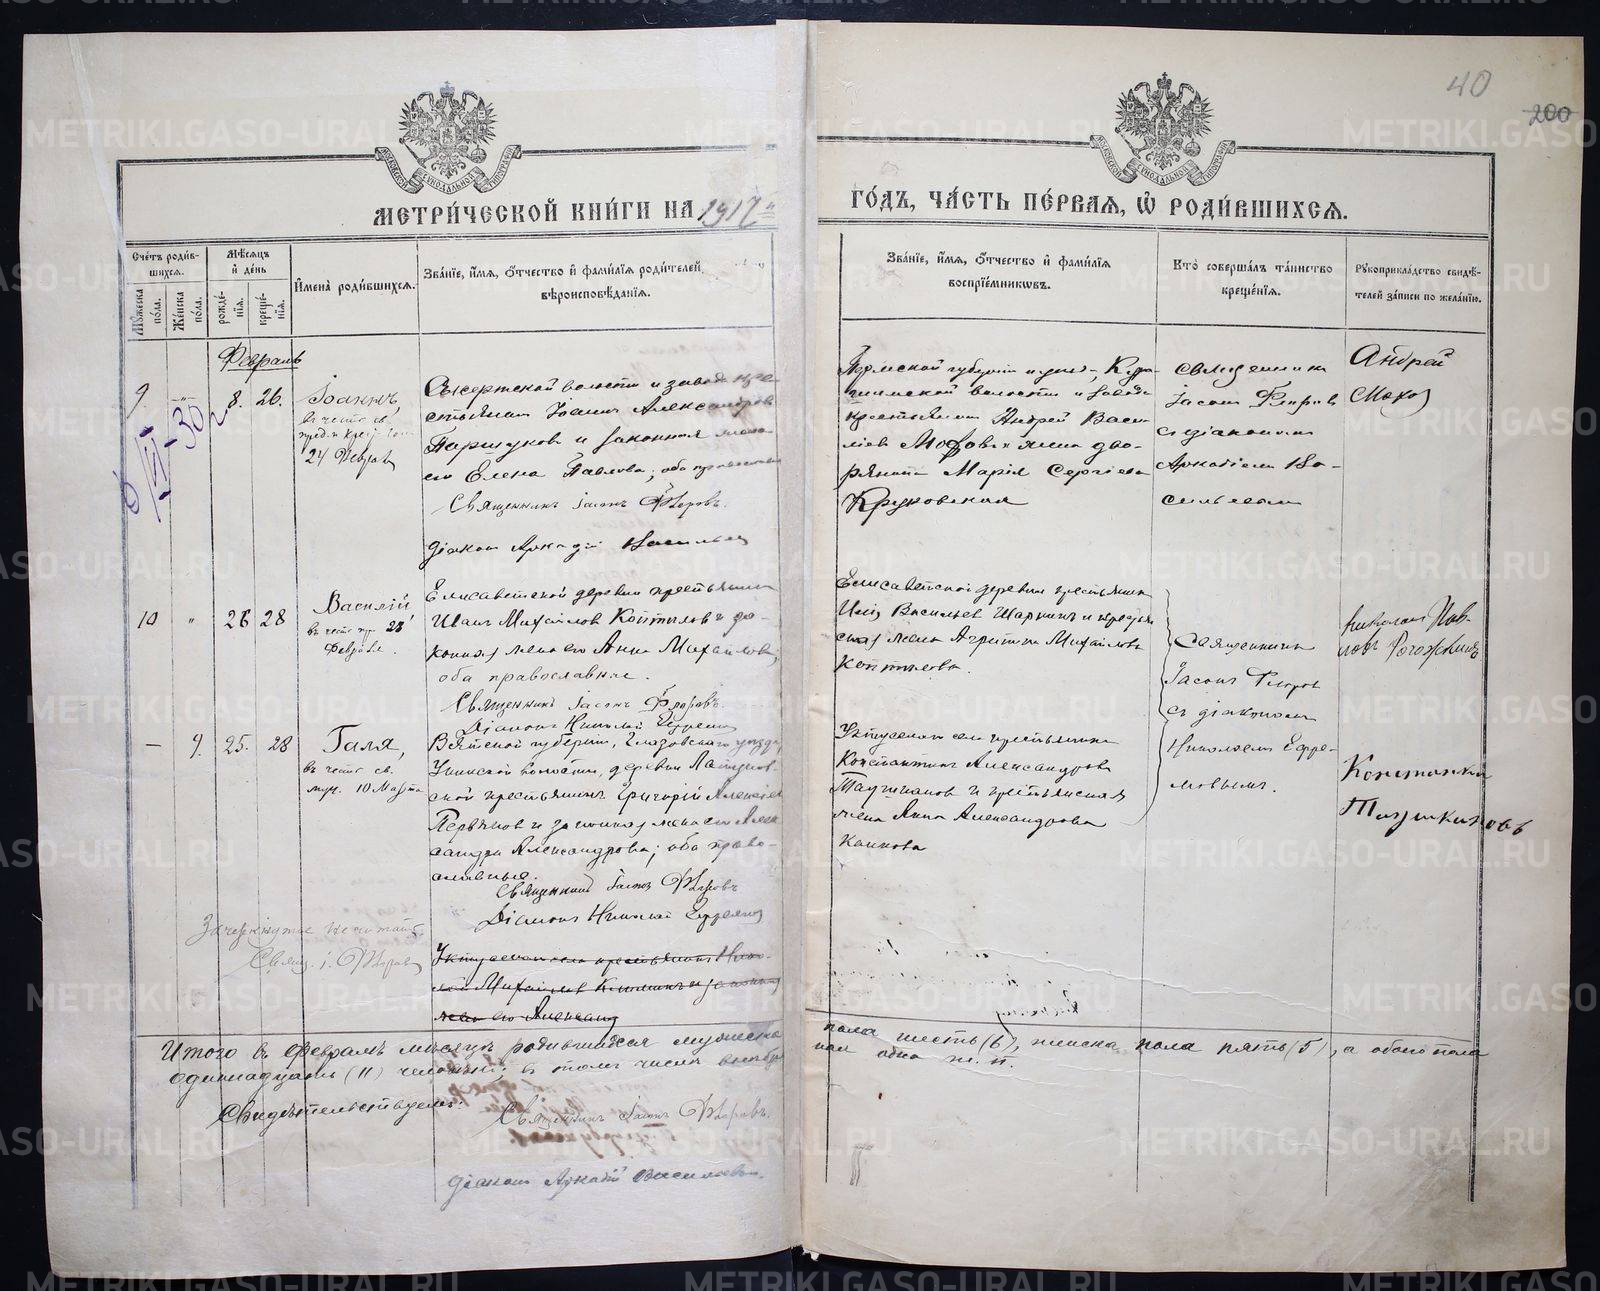 40
200
МЕТРИ́ЧЕСКОЙ КНИ́ГИ НА 1917 ГО́ДЪ, ЧА́СТЬ ПЕ́РВАЯ, Ѡ РОДИ́ВШИХСЯ.
Сче́тъ роди́вшихся.
Му́жеска по́ла.
Же́нска по́ла.
Мѣ́сяцъ и де́нь
рожде́нія.
креще́нія.
И́мена роди́вшихся.
Зва́ніе, и́мя, о́тчество и фами́лія роди́телей,
вѣроисповѣ́данія.
Зва́ніе, и́мя, о́тчество и фами́лія
воспріе́мниковъ.
Кто̀ соверша́лъ та́инство
креще́нія.
Рукоприкла́дство свидѣ́-
телей за́писи по жела́нію.
Февраль
9. " 8. 26.
Іоаннъ,
въ честь св.
24 Февраля
Сысертской волости и завода кре-
стьянинъ Іоаннъ Александровъ
и законная жена
его Елена Павлова; оба православные
Священникъ Іасонъ Флоровъ.
Діаконъ Аркадій Васильевъ
Пермской губерніи и уѣзда,
волости и завода
крестьянинъ Андрей Васи
льевъ и жена дво-
рянина Марія Сергіева
Круковская
Священникъ
Іасонъ Флоровъ
съ діакономъ
Аркадіемъ Ва-
сильевымъ
Андрей
10 " 26 28
Василій
въ честь пр. 28
Февраля.
Елисаветской деревни крестьянинъ
Иванъ Михайловъ Коптяловъ и за-
конная жена его Анна Михайлова,
оба православные.
Священникъ Іасонъ Флоровъ.
Діаконъ Николай Ефремовъ
Елисаветской деревни крестьянинъ
Илія Васильевъ и крестьян
ская жена Михайлова
Священникъ
Іасонъ Флоровъ
съ діакономъ
Николаемъ Ефре-
мовымъ.
Николай Пав-
ловъ Рогожкинъ
— 9. 25. 28
Галя,
въ честь св.
муч. 10 Марта
Вятской губерніи, Глазовскаго уѣзда,
Унинской волости, деревни
ской крестьянинъ Григорій Алексѣевъ
и законная жена его Алек
сандра Александрова; оба право-
славные.
Священникъ Іасонъ Флоровъ
Діаконъ Николай Ефремовъ
Уктусскаго села крестьянинъ
Константинъ Александровъ
и крестьянская
жена Анна Александрова
Константинъ
Зачеркнутое не читать
Свящ. І. Флоровъ
Уктусскаго села крестьянинъ Нико-
лай Михайловъ и законная
жена его Александ
Итого въ Февралѣ мѣсяцѣ родившихся мужеска пола шесть (6), женска пола пять (5), а обоего пола
одиннадцать (11) человѣкъ; въ томъ числѣ
Свидѣтельствуемъ:
Священникъ Іасонъ Флоровъ.
Діаконъ Аркадій Васильевъ.
METRIKI.GASO-URAL.RU